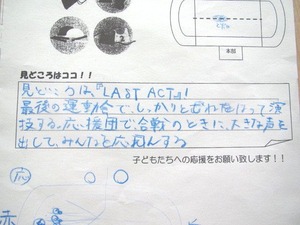 本部
見どころはココ！！
見どころは『LAST ACT』!
最後の運動会で、しっかりとむねをはって演
技する。応援団で、合戦のときに、大きな声を
出して、みんなを応えんする
子どもたちへの応援をお願い致します！！
応
赤